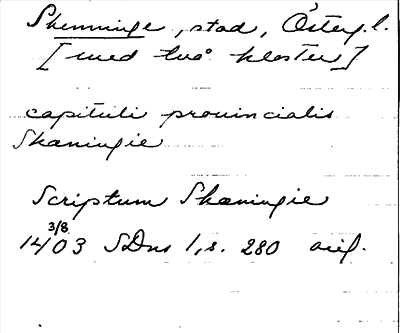 Skenninge, stad, Österg.l.
[med två kloster]
capituli prouincialis
Skæningie
Scriptum Skæningie
3/8
1403 SDns 1, s. 280 orig.